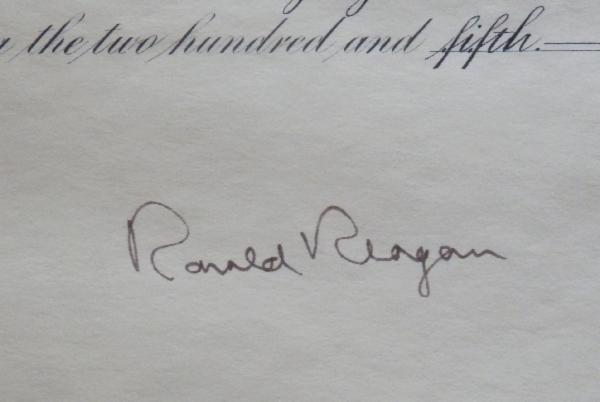 the two hundred and fifth.
Ronald Reagan